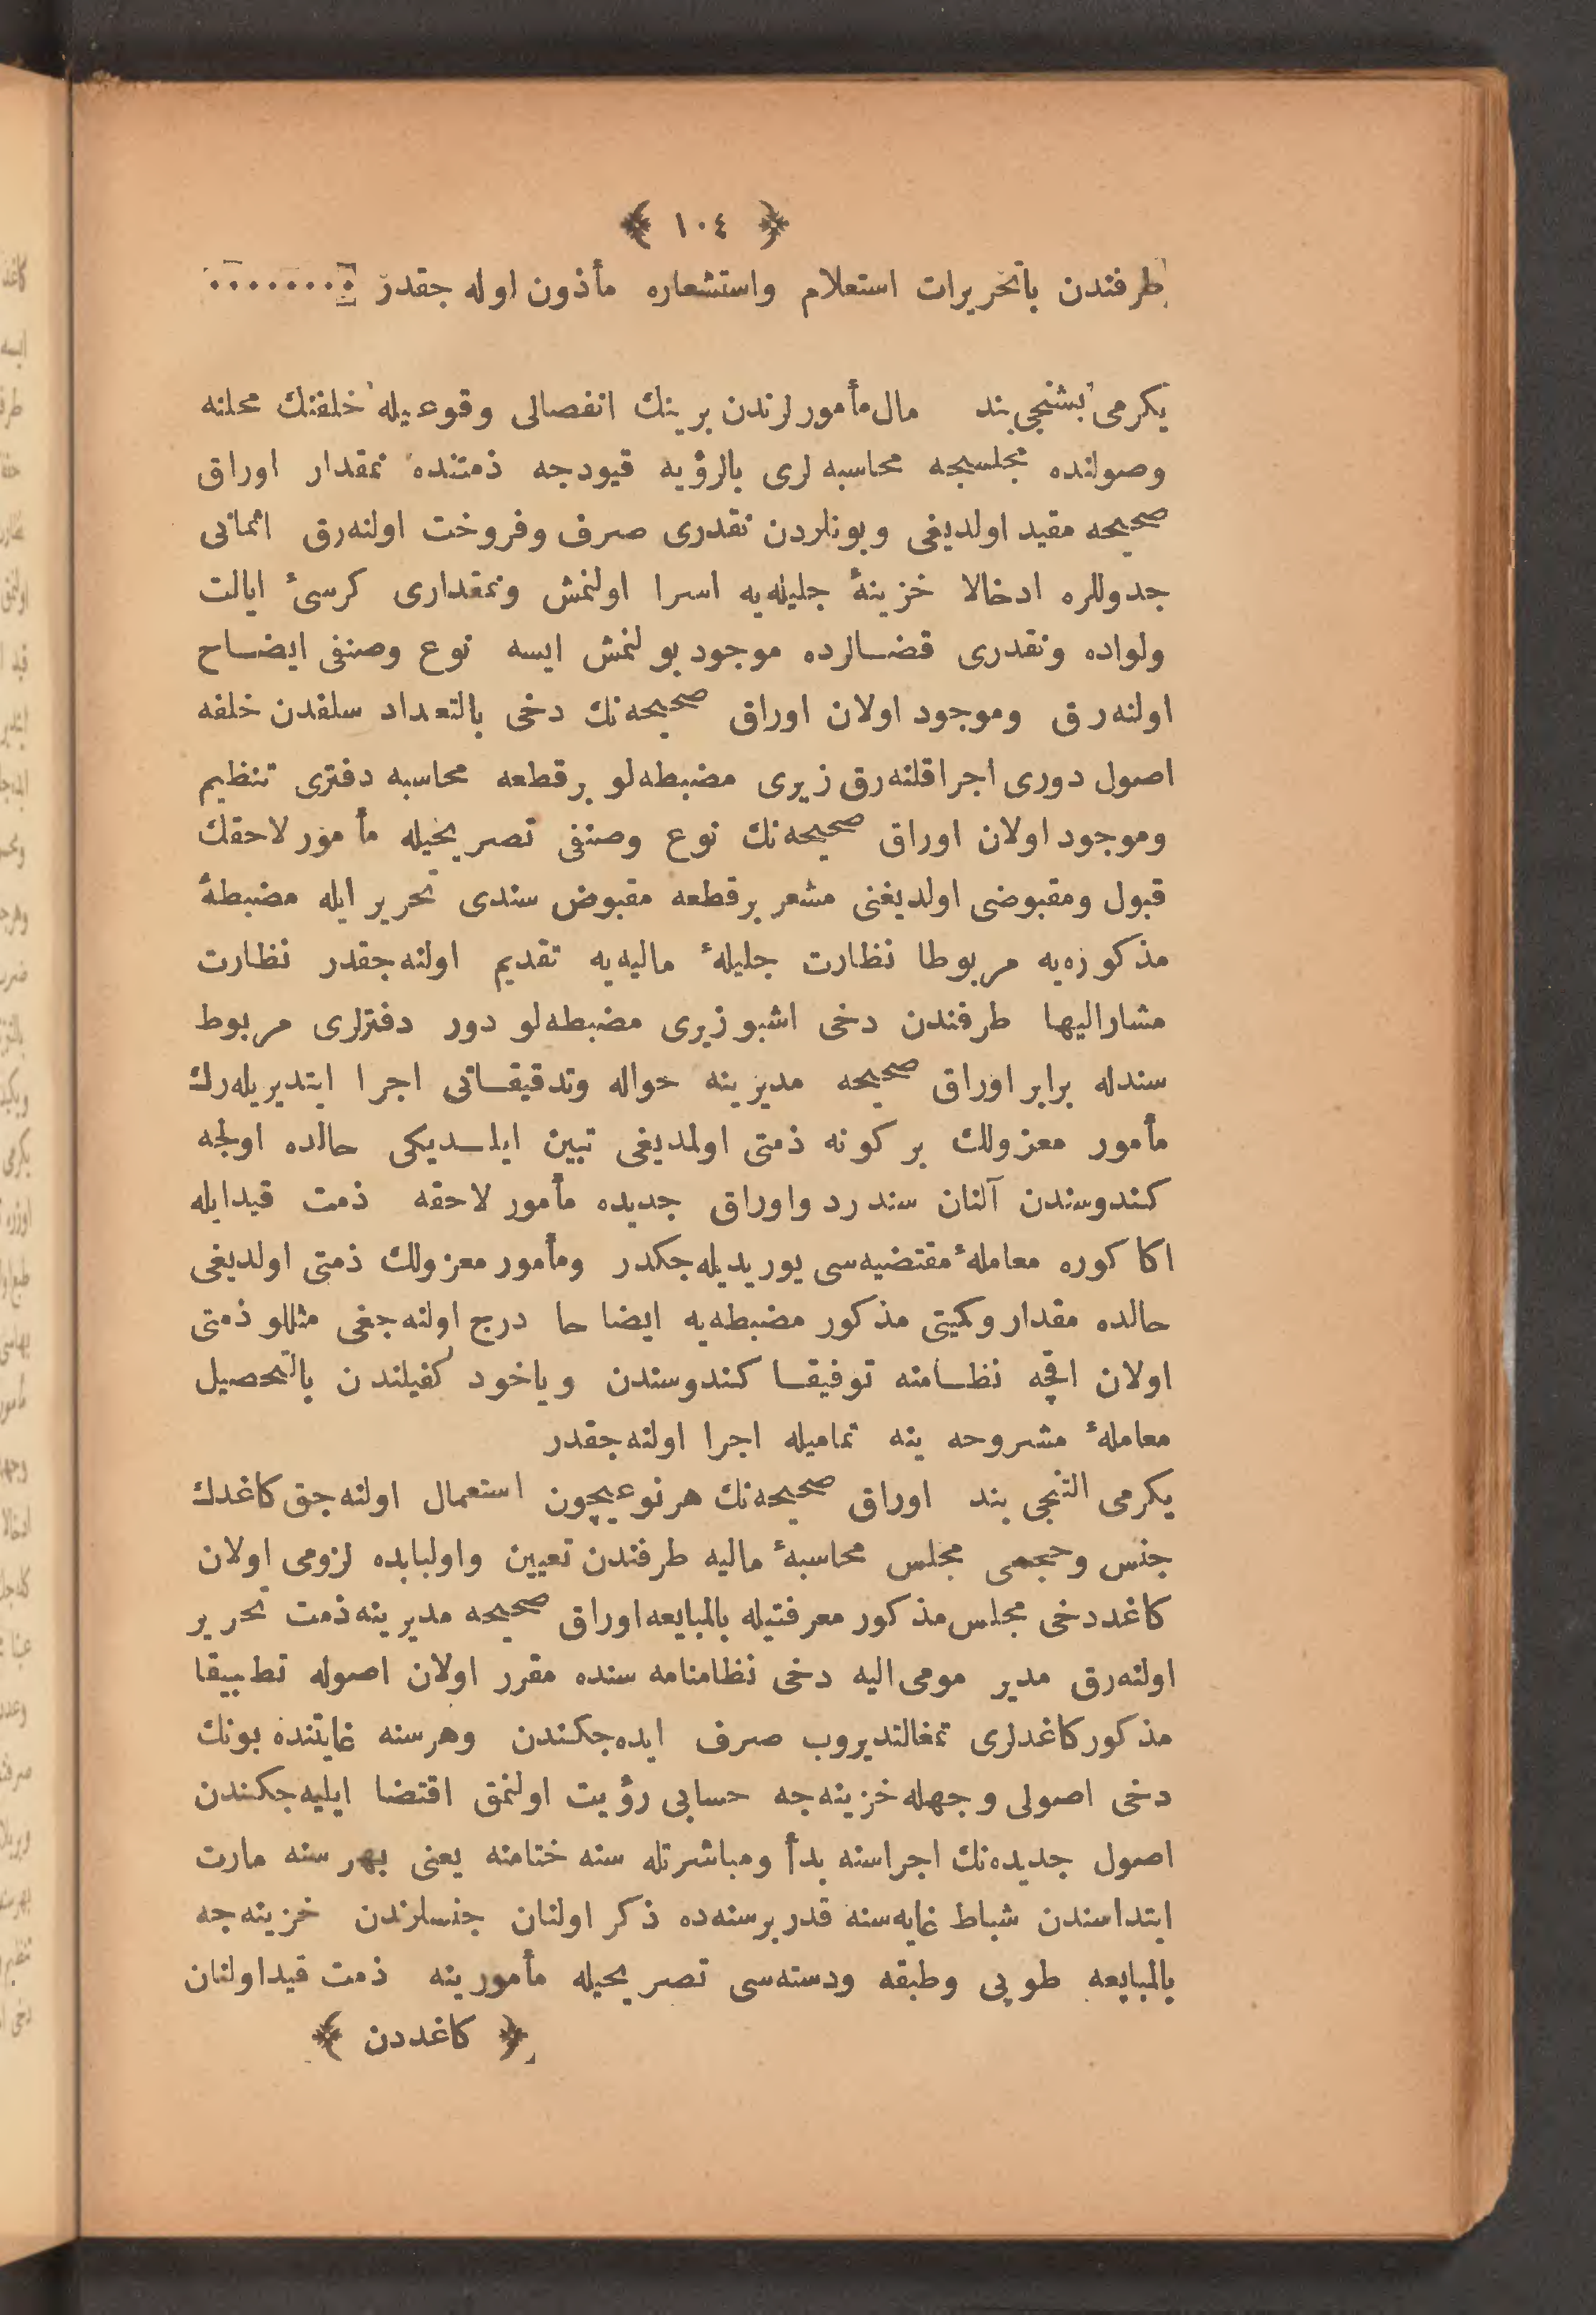 ﴿ ١٠٤ ﴾
طرفندن باتحریرات استعلام واستشعاره مأذون اوله جقدر ........
یكرمی بشنجی بند مال مأمورلرندن برینك انفصالی وقوعیله خلفنك محلنه
وصولنده مجلسجه محاسبه لری بالرؤیه قیودجه ذمتنده نمقدار اوراق
صحیحه مقید اولدیغی وبونلردن نقدری صرف وفروخت اولنه رق اثمانی
جدوللره ادخالا خزینهٔ جلیله یه اسرا اولنمش ونمقداری كرسیٔ ایالت
ولواده ونقدری قضالرده موجود بولنمش ایسه نوع وصنفی ایضاح
اولنه رق وموجود اولان اوراق صحیحه نك دخی بالتعداد سلفدن خلفه
اصول دوری اجرا قلنه رق زیری مضبطه لو برقطعه محاسبه دفتری تنظیم
وموجود اولان اوراق صحیحه نك نوع وصنفی تصریحیله مأمور لاحقك
قبول ومقبوضی اولدیغنی مشعر برقطعه مقبوض سندی تحریر ایله مضبطهٔ
مذكوره یه مربوطا نظارت جلیلهٔ مالیه یه تقدیم اولنه جقدر نظارت
مشارالیها طرفندن دخی اشبو زیری مضبطه لو دور دفترلری مربوط
سندله برابر اوراق صحیحه مدیرینه حواله وتدقیقاتی اجرا ایتدیریله رك
مأمور معزولك بر كونه ذمتی اولمدیغی تبین ایلدیكی حالده اولجه
كندوسندن آلنان سند رد واوراق جدیده مأمور لاحقه ذمت قیدایله
اكا كوره معاملهٔ مقتضیه سی یوریدیله جكدر ومأمور معزولك ذمتی اولدیغی
حالده مقدار وكمیتی مذكور مضبطه یه ایضاحا درج اولنه جغی مثللو ذمتی
اولان اقچه نظامنه توفیقا كندوسندن ویاخود كفیلندن بالتحصیل
معاملهٔ مشروحه ینه تمامیله اجرا اولنه جقدر
یكرمی التنجی بند اوراق صحیحه نك هرنوعیچون استعمال اولنه جق كاغدك
جنس وحجمی مجلس محاسبهٔ مالیه طرفندن تعیین واولبابده لزومی اولان
كاغددخی مجلس مذكور معرفتیله بالمبایعه اوراق صحیحه مدیرینه ذمت تحریر
اولنه رق مدیر مومی الیه دخی نظامنامه سنده مقرر اولان اصوله تطبیقا
مذكور كاغدلری تمغالتدیروب صرف ایده جكندن وهرسنه غایتنده بونك
دخی اصولی وجهله خزینه جه حسابی رؤیت اولنمق اقتضا ایلیه جكندن
اصول جدیده نك اجراسنه بدأ ومباشرتله سنه ختامنه یعنی بهر سنه مارت
ابتداسندن شباط غایه سنه قدر برسنه ده ذكر اولنان جنسلرندن خزینه جه
بالمبایعه طوپی وطبقه ودسته سی تصریحیله مأمورینه ذمت قیداولنان
﴿ كاغددن ﴾